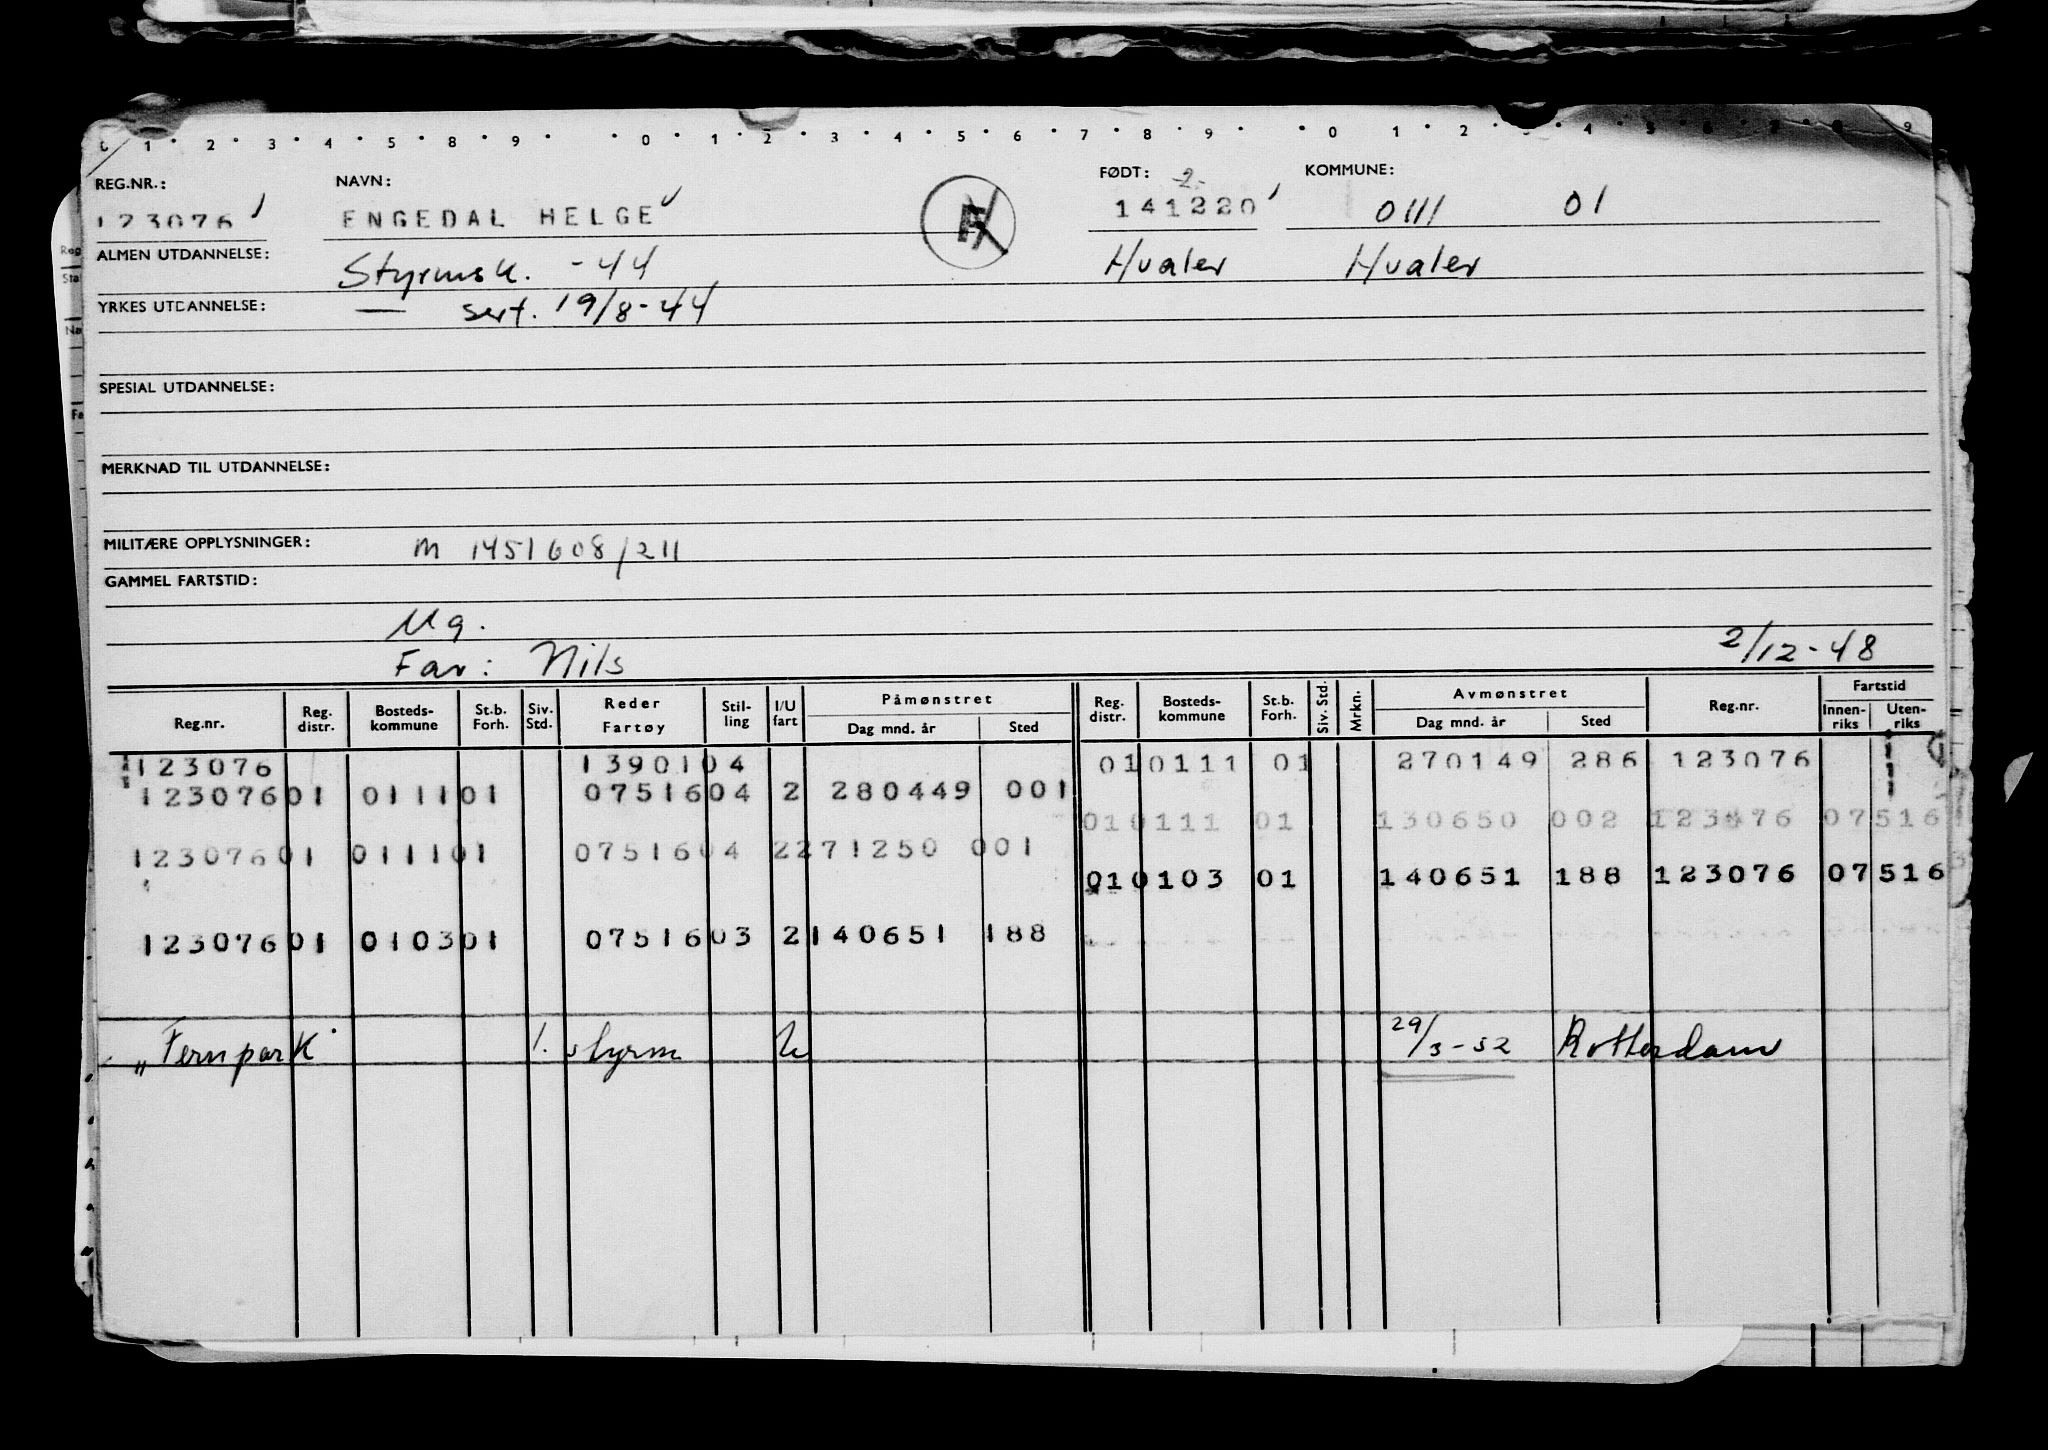 0 1 2 3 4 5 8 9 0 1 2 3 4 5 6 7 8 9 0 1 2 3 4 5 6 7 8 9
REG.NR.: NAVN: FØDT: -2- KOMMUNE:
123076 ENGEDAL HELGE 141220 0111 01
ALMEN UTDANNELSE: Styrmsk. -44 Hvaler Hvaler
YRKES UTDANNELSE: — sert. 19/8-44
SPESIAL UTDANNELSE:
MERKNAD TIL UTDANNELSE:
MILITÆRE OPPLYSNINGER: M 1451608/211
GAMMEL FARTSTID:
Ug.
Far: Nils 2/12-48
Reg.nr. Reg. distr. Bosteds-kommune St.b. Forh. Siv. Std. Reder Fartøy Stil-ling I/U fart Påmønstret Dag mnd. år Sted Reg. distr. Bosteds-kommune St.b. Forh. Siv. Std. Mrkn. Avmønstret Dag mnd. år Sted Reg.nr. Fartstid Innen-riks Uten-riks
123076 1390104 010111 01 270149 286 123076
12307601 011101 0751604 2 280449 001
010111 01 130650 002 123076 07516
12307601 011101 0751604 2271250 001
010103 01 140651 188 123076 07516
12307601 010301 0751603 2140651 188
"Fernpark" 1. styrm U 29/3-52 Rotterdam